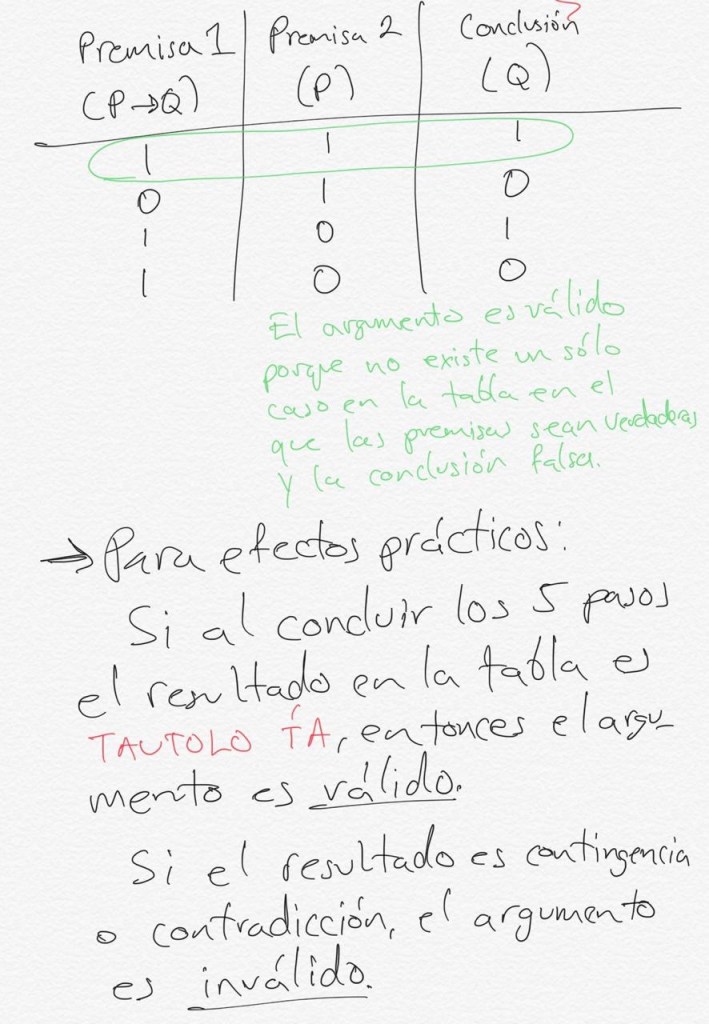 Premisa 1 Premisa 2 Conclusión
(P→Q) (P) (Q)
1 1 1
0 1 0
1 0 1
1 0 0
El argumento es válido
porque no existe un sólo
caso en la tabla en el
que las premisas sean verdaderas
y la conclusión falsa.
→ Para efectos prácticos:
Si al concluir los 5 pasos
el resultado en la tabla es
TAUTOLO ÍA, entonces el argu-
mento es válido.
Si el resultado es contingencia
o contradicción, el argumento
es inválido.